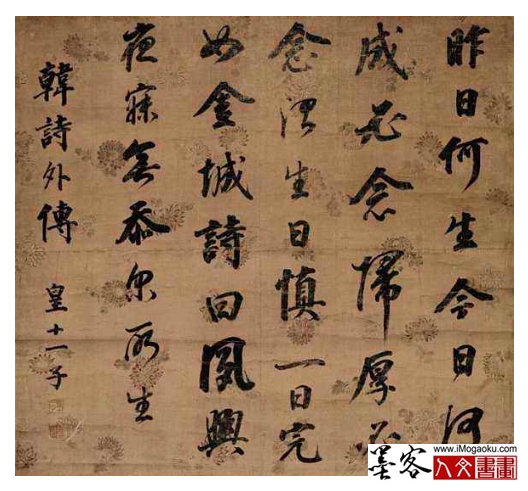 昨日何生今日何
成必念歸厚必
念治生日慎一日完
如金城詩曰夙興
夜寐無忝尔所生
韓詩外傳 皇十一子
墨客 www.iMogaoku.com
人文書畫